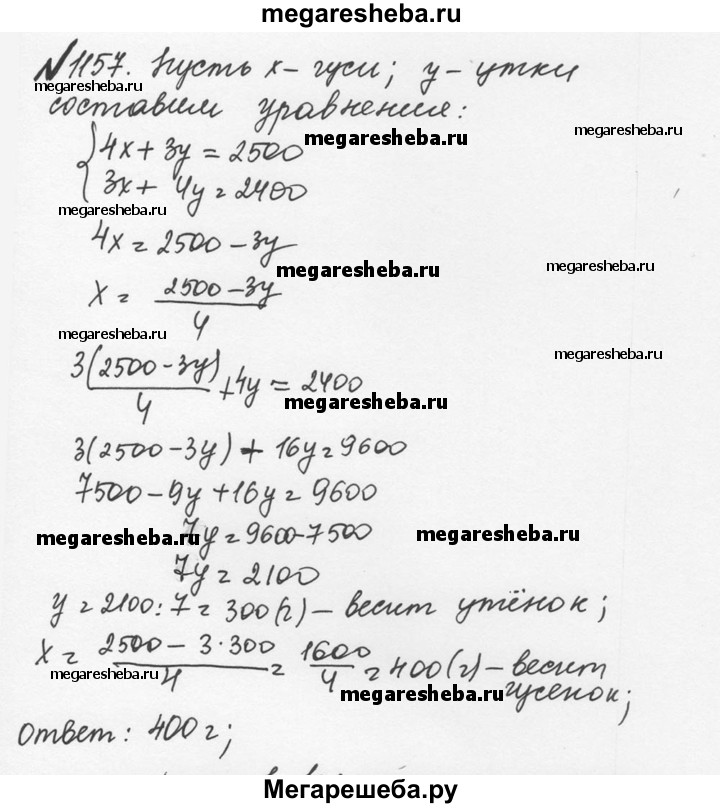 megaresheba.ru
№1157. Пусть x - гуси; y - утки
megaresheba.ru
составим уравнение:
4x + 3y = 2500
megaresheba.ru
megaresheba.ru
3x + 4y = 2400
megaresheba.ru
4x = 2500 - 3y
megaresheba.ru
megaresheba.ru
x = (2500 - 3y)/4
megaresheba.ru
megaresheba.ru
3(2500 - 3y)/4 + 4y = 2400
megaresheba.ru
3(2500 - 3y) + 16y = 9600
7500 - 9y + 16y = 9600
7y = 9600 - 7500
megaresheba.ru
megaresheba.ru
7y = 2100
y = 2100 : 7 = 300 (г) - весит утёнок;
x = (2500 - 3·300)/4 = 1600/4 = 400 (г) - весит
megaresheba.ru
megaresheba.ru
гусенок;
Ответ: 400 г;
Мегарешеба.ру